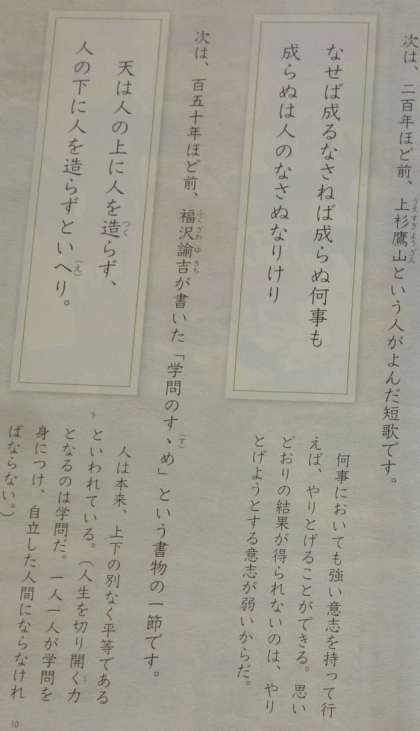 次は、二百年ほど前、上杉鷹山という人がよんだ短歌です。
なせば成るなさねば成らぬ何事も
成らぬは人のなさぬなりけり
何事においても強い意志を持って行
えば、やりとげることができる。思い
どおりの結果が得られないのは、やり
とげようとする意志が弱いからだ。
次は、百五十年ほど前、福沢諭吉が書いた「学問のすゝめ」という書物の一節です。
天は人の上に人を造らず、
人の下に人を造らずといへり。
人は本来、上下の別なく平等である
といわれている。（人生を切り開く力
となるのは学問だ。一人一人が学問を
身につけ、自立した人間にならなけれ
ばならない。）
10